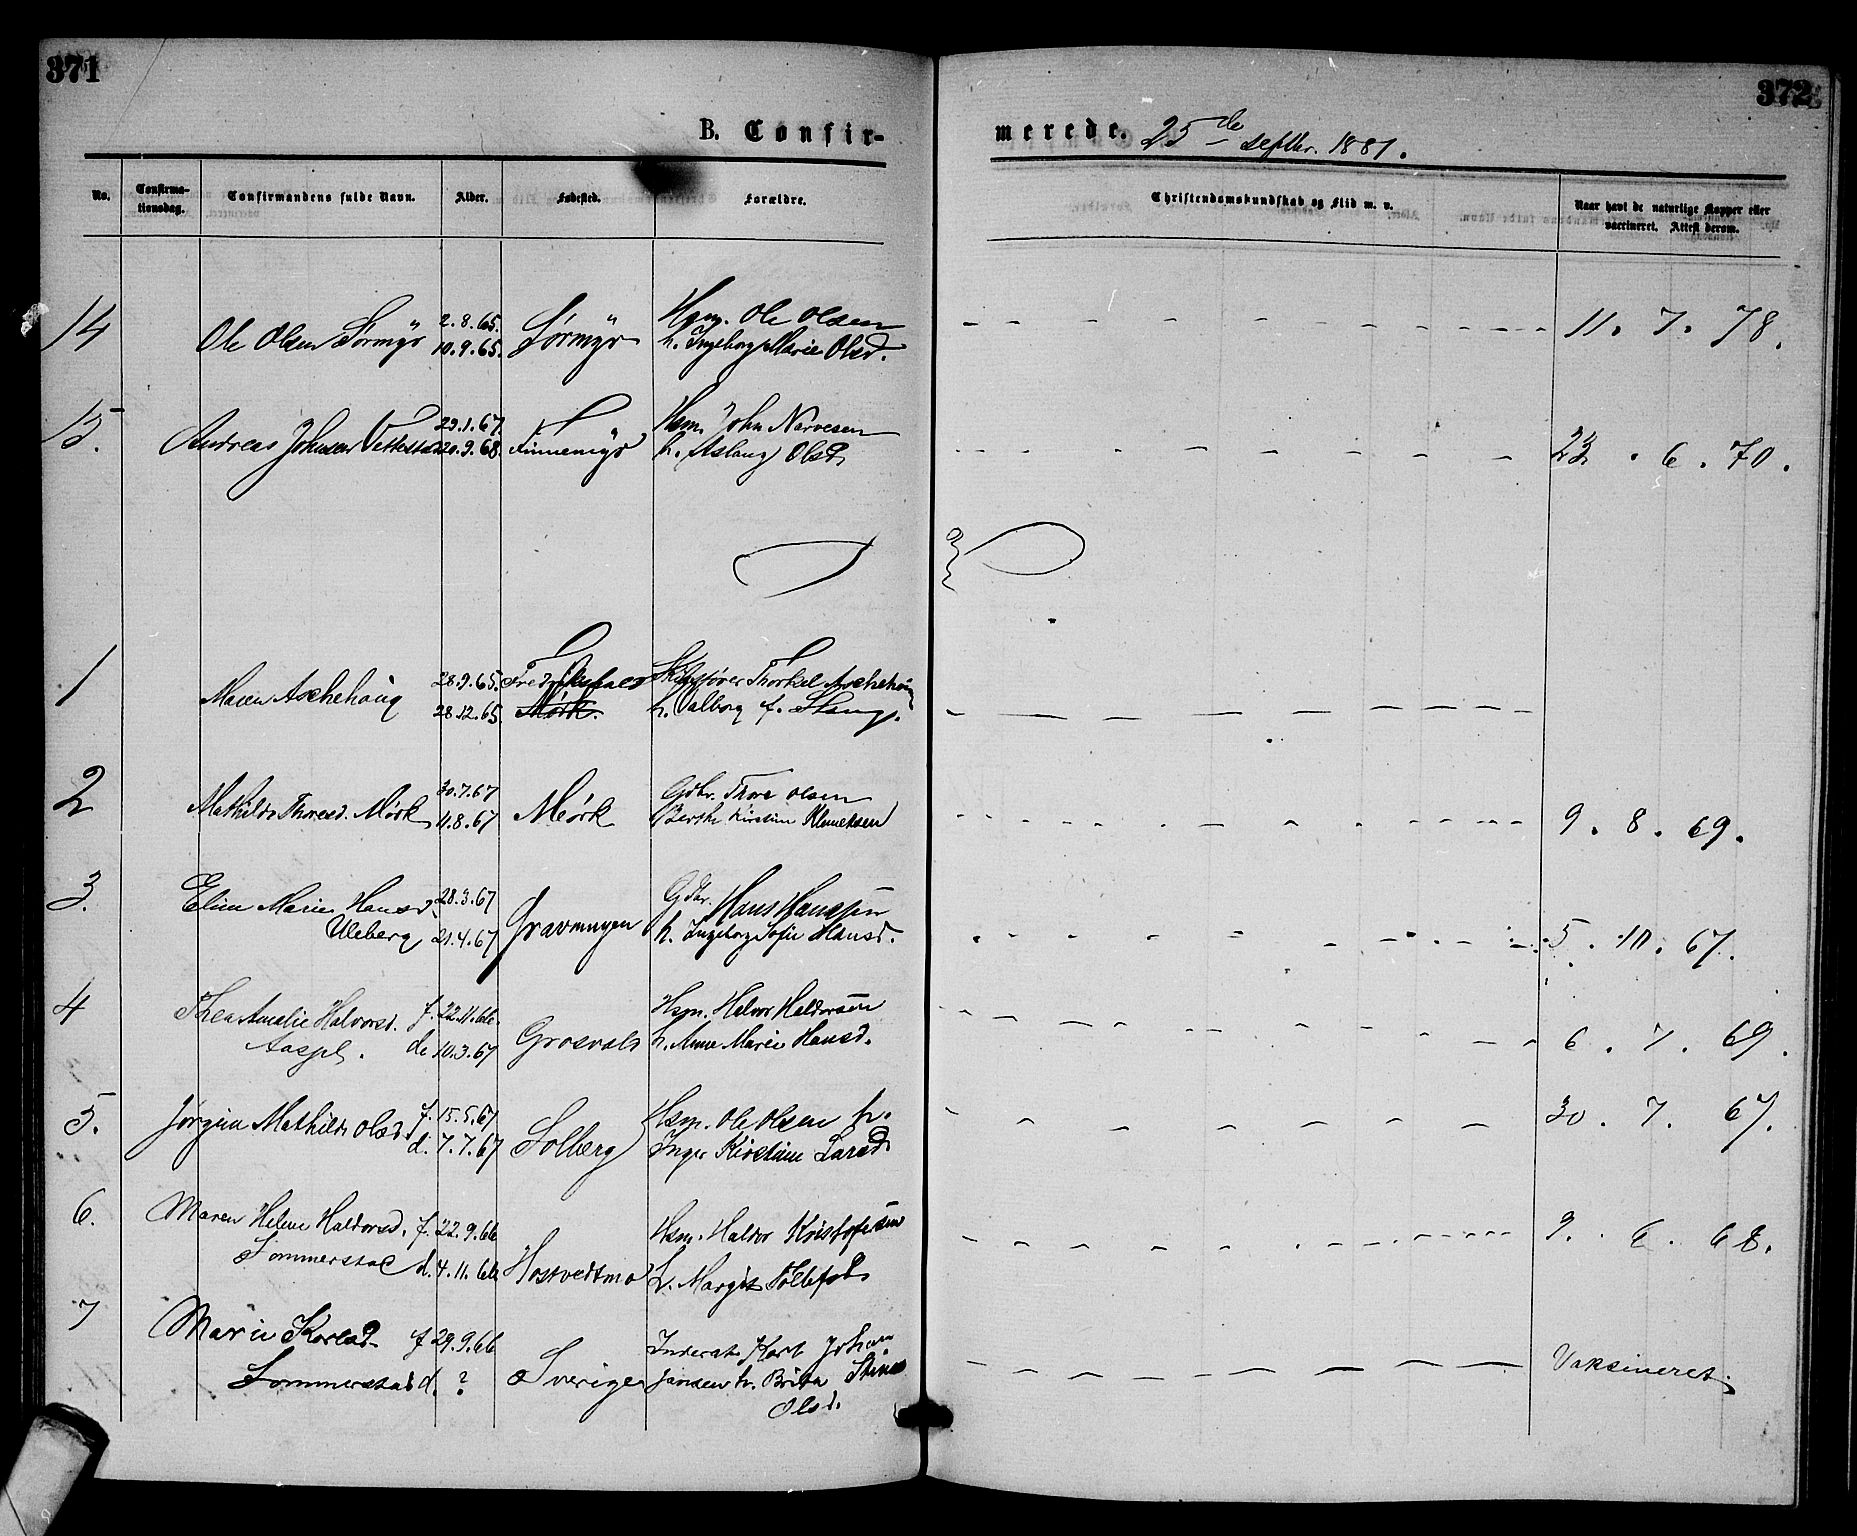 371
372
B. Confir-
merede. 25de septbr. 1881.
No.
Confirma-
tionsdag.
Confirmandens fulde Navn.
Alder.
Fødested.
Forældre.
Christendomskundskab og Flid m. v.
Naar havt de naturlige Kopper eller
vaccineret. Attest derom.
14
Ole Olsen Sørmyr
2.8.65.
10.9.65.
Sørmyr
Hsm. Ole Olsen
h. Ingeborg Marie Olsd.
11. 7. 78.
15.
Andreas Johnsen Vettestad
29.1.67.
20.9.68.
Finnemyr
Hsm John Narvesen
h. Aslaug Olsd.
23. 6. 70.
1
Maren Aschehoug
28.9.65.
28.12.65.
Fredrikshald
Mørk.
Thorkel Aschehoug
h. Valborg f. Stang.
2
Mathilde Thoresd. Mørk
30.7.67
11.8.67
Mørk
Gdbr. Thore Olsen
Berthe Kirstine Klemetsen
9. 8. 69.
3.
Eline Marie Hansd.
Uleberg
28.3.67
21.4.67
Gravningen
Gdbr. Hans Hansen
h. Ingeborg Sofie Hansd.
5. 10. 67.
4
Thea Amalie Halvorsd.
f. 22.11.66.
d. 10.3.67
Grosvold
Hsm. Halvor Haldorsen
h. Anne Marie Hansd.
6. 7. 69.
5.
Jørgine Mathilde Olsd.
f. 15.5.67
d. 7.7.67
Solberg
Hsm. Ole Olsen h.
Inger Kirstine Larsd.
30. 7. 67.
6.
Maren Helene Haldorsd.
Sommerstad
f. 22.9.66
d. 4.11.66
Hostvedtmo
Hsm. Haldor Kristofersen
h. Margit Tollefsd.
9. 6. 68.
7
Marie Karlsd.
Sommerstad
f 29.9.66
d. ?
Sverige
Inderst Karl Johan
Jansen h. Brita Stina
Olsd.
Vaksineret.